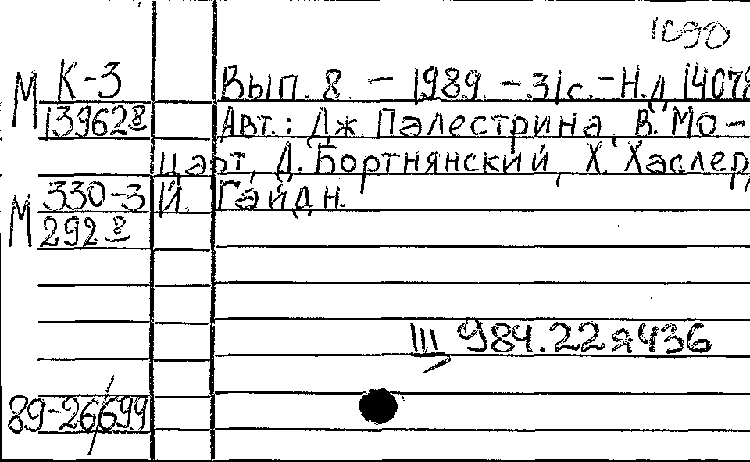 1090
М К-3 Вып. 8. – 1989. – 31с. – Н.д. 14078
139628 Авт.: Дж Палестрина, В. Мо-
царт, Д. Бортнянский, Х. Хаслер,
М 330-3 Й. Гайдн.
292 8
Ш 984.22я436
89-26699